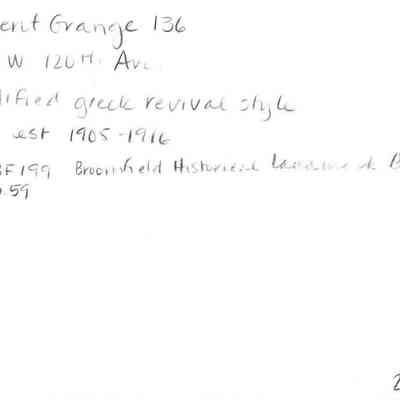 erit Grange 136
W 120th Ave.
ified greek revival style
est 1905-1916
BF199 Broomfield Historical Landmark B
.59
2